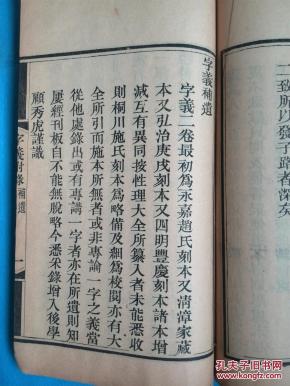 字義補遺
字義二卷最初爲永嘉趙氏刻本又清漳家藏
本又弘治庚戌刻本又四明豐慶刻本諸本增
減互有異同按性理大全所纂入者未能悉收
則桐川施氏刻本爲略備及細爲校閱亦有大
全所引而施本所無者或非專論一字之義當
從他處錄出或有專講一字者亦在所遺則知
屢經刊板自不能無脫略今悉采錄增入後學
顧秀虎謹識
字義附錄補遺
一
二致所以發子路者深矣
孔夫子旧书网